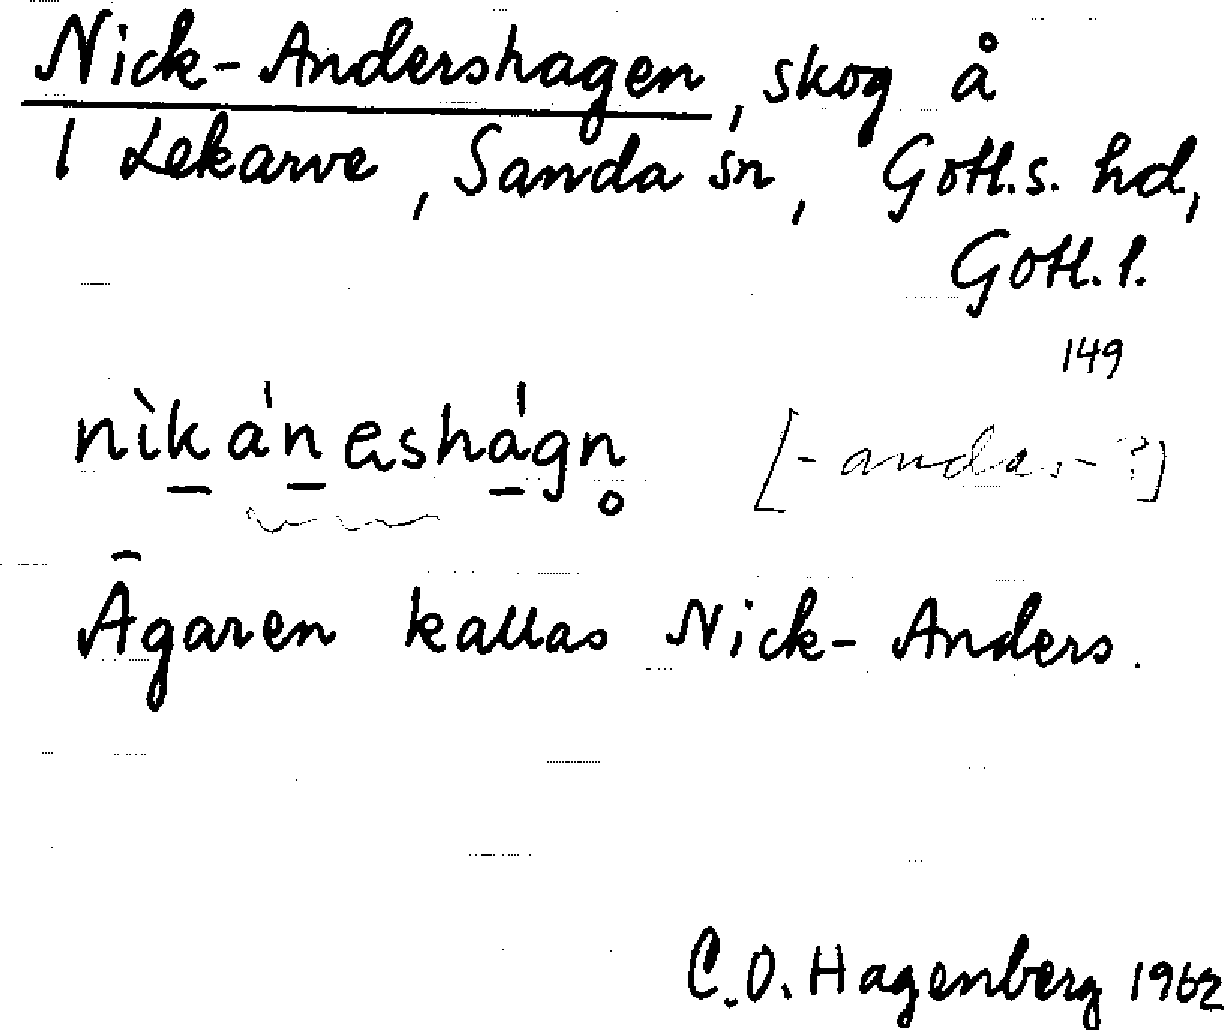 Nick-Andershagen, skog å
1 Lekarve, Sanda sn, Gotl. s. hd,
Gotl. l.
149
nìkáneshágn̥ [-andes-?]
Ägaren kallas Nick-Anders.
C.O. Hagenberg 1962